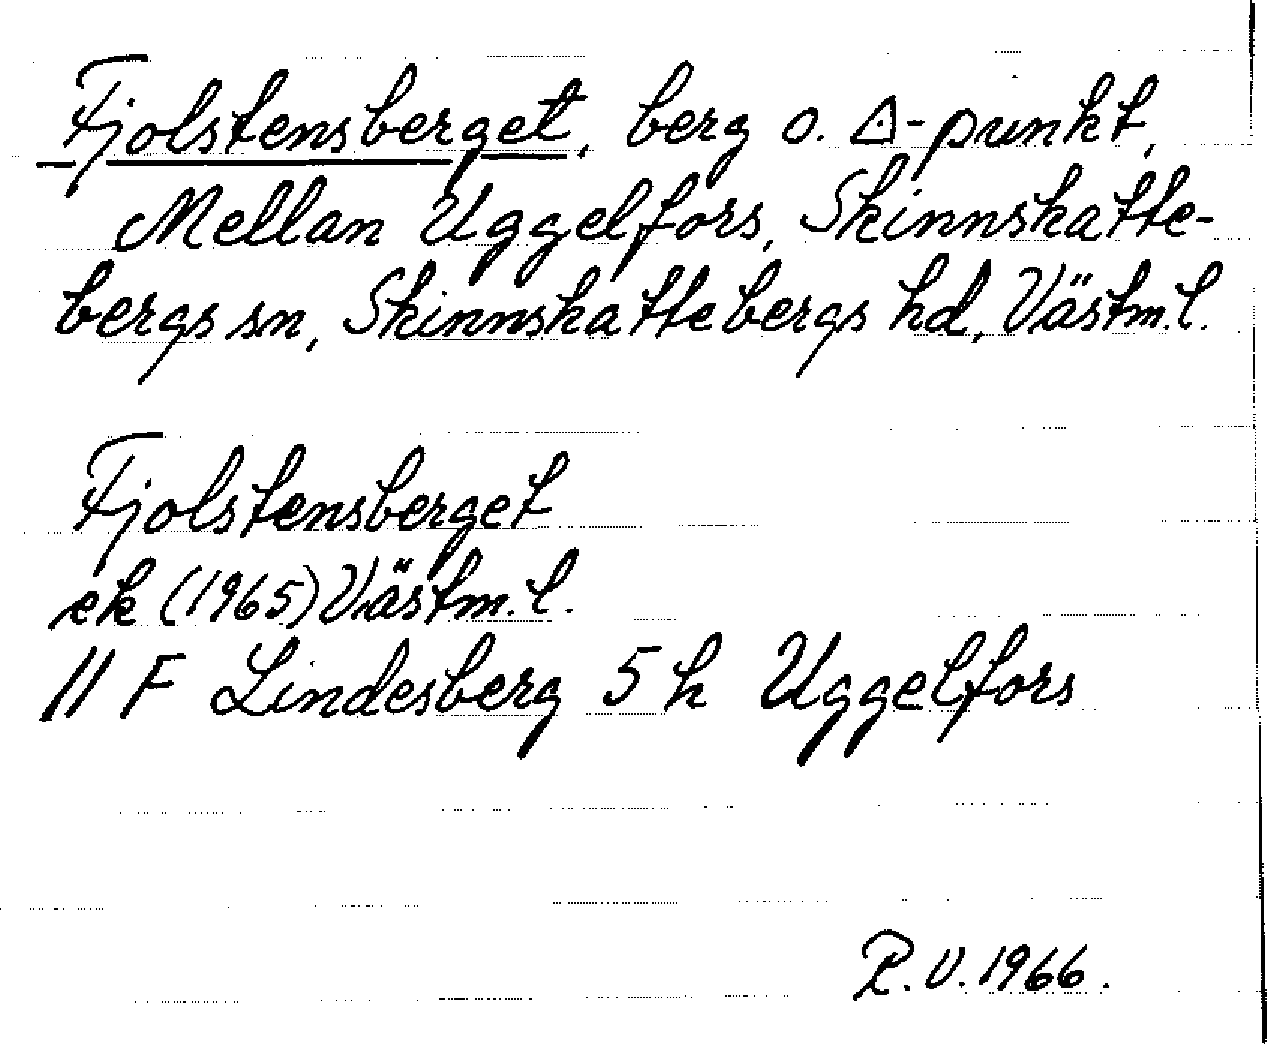 Fjolstensberget, berg o. △-punkt,
Mellan Uggelfors, Skinnskatte-
bergs sn, Skinnskattebergs hd, Västm.l.
Fjolstensberget
ek (1965) Västm.l.
11 F Lindesberg 5 h Uggelfors
R.V. 1966.